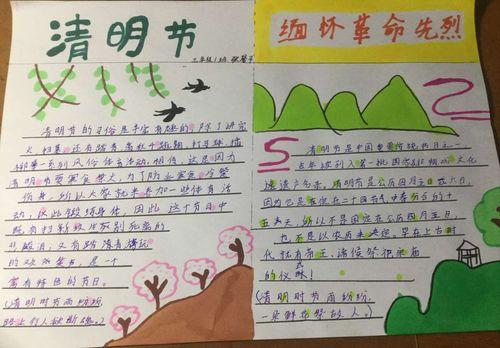 清明节
缅怀革命先烈
清明节的习俗是丰富有趣的,除了讲究
火,扫墓,还有踏青、荡秋千、蹴鞠、打马球、插
柳等一系列风俗体育活动。相传,这是因为
清明节要寒食禁火,为了防止寒食冷餐
伤身,所以大家就来参加一些体育活
动,以锻炼身体。因此,这个节日中
既有扫新坟生离死别的
又有踏青游玩
的欢笑声,是一个
富有特色的节日。
(清明时节雨纷纷,
路上行人欲断魂。)
清明节是中国重要传统节日之一,
去年被列入第一批国家级非物质文化
遗产名录。清明节是公历四月五或六日,
五天,所以不是固定在公历四月五日,
也不是以农历来决定。早在上古时
代就有帝王、诸侯祭祀宗庙
的仪式!
(清明时节雨纷纷,
一朵鲜花祭故人。)